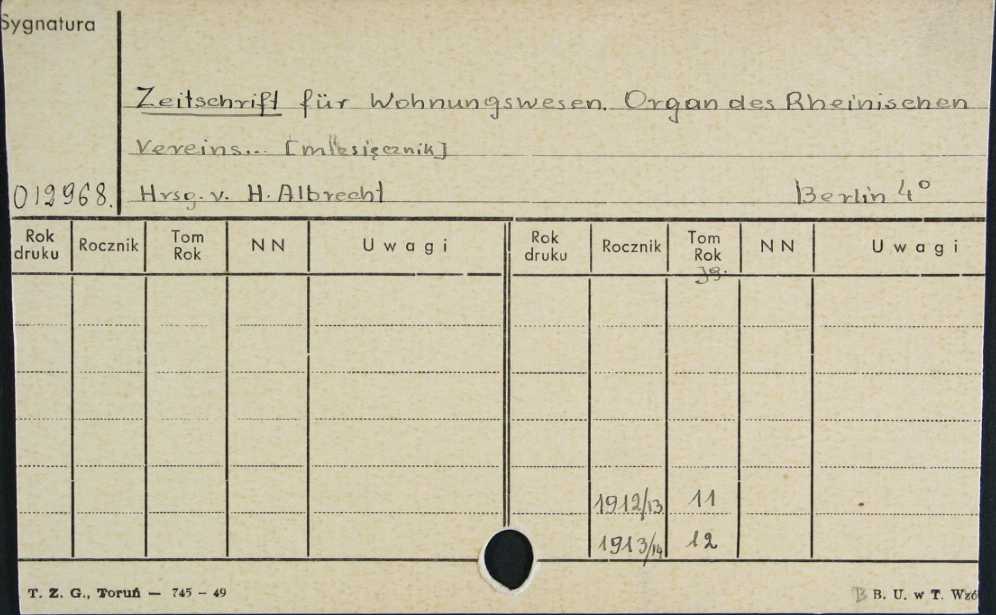 Sygnatura
Zeitschrift für Wohnungswesen. Organ des Rheinischen
Vereins... [miesięcznik]
012968. Hrsg. v. H. Albrecht Berlin 4°
Rok druku Rocznik Tom Rok NN Uwagi Rok druku Rocznik Tom Rok NN Uwagi
Jg.
1912/13 11
1913/14 12
T. Z. G., Toruń — 745 - 49 B. U. w T. Wzó